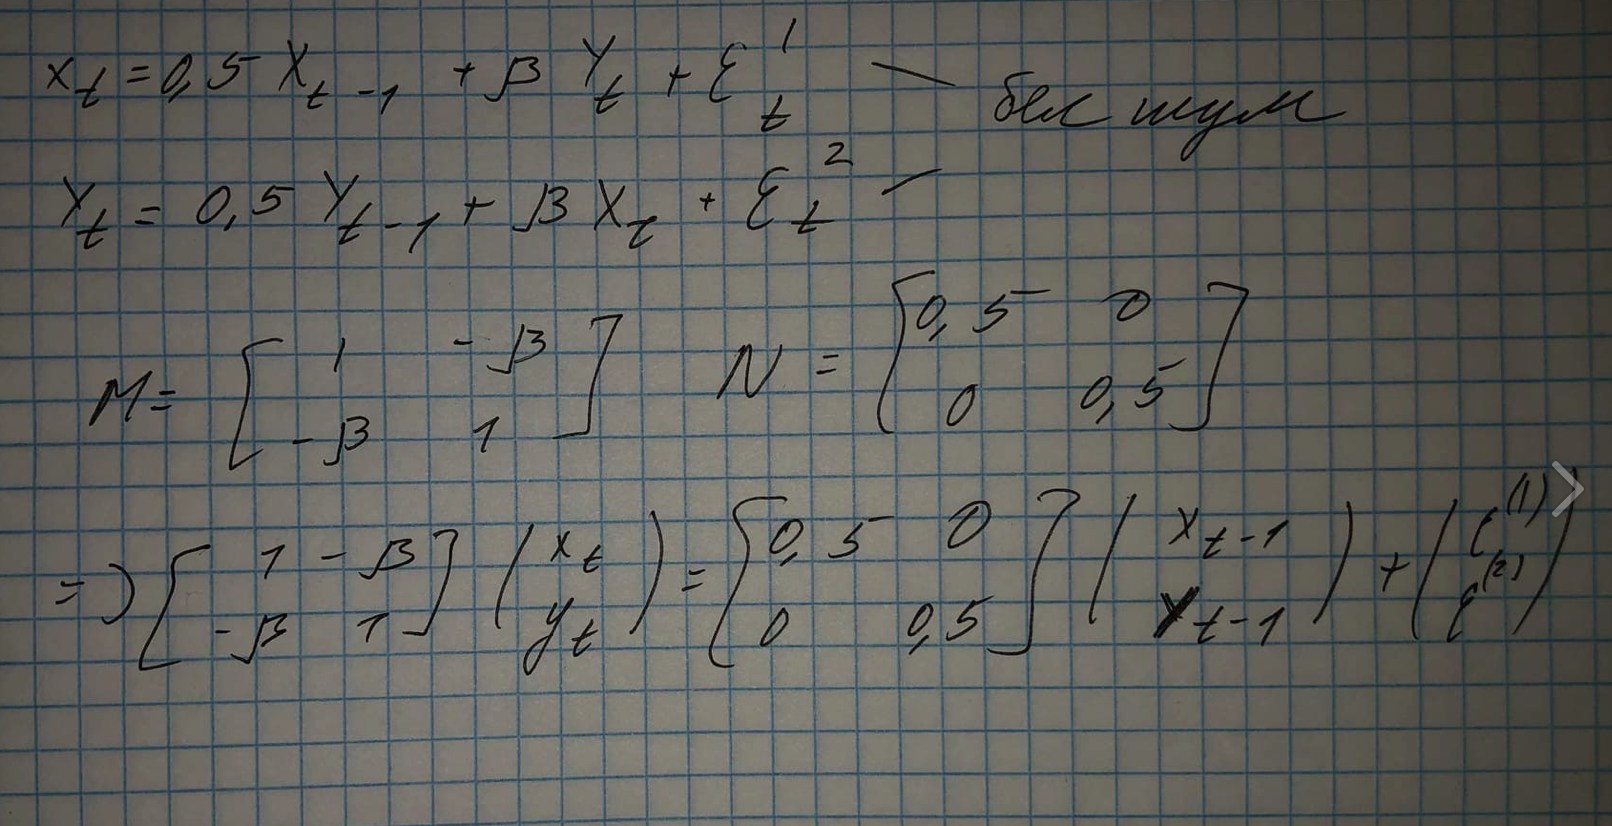 x_t = 0,5 X_{t-1} + β Y_t + ε_t^1 — бел шум
Y_t = 0,5 Y_{t-1} + β X_t + ε_t^2 —
M = [1 -β; -β 1] N = [0,5 0; 0 0,5]
=> [1 -β; -β 1] (x_t; y_t) = [0,5 0; 0 0,5] (x_{t-1}; Y_{t-1}) + (ε^{(1)}; ε^{(2)})